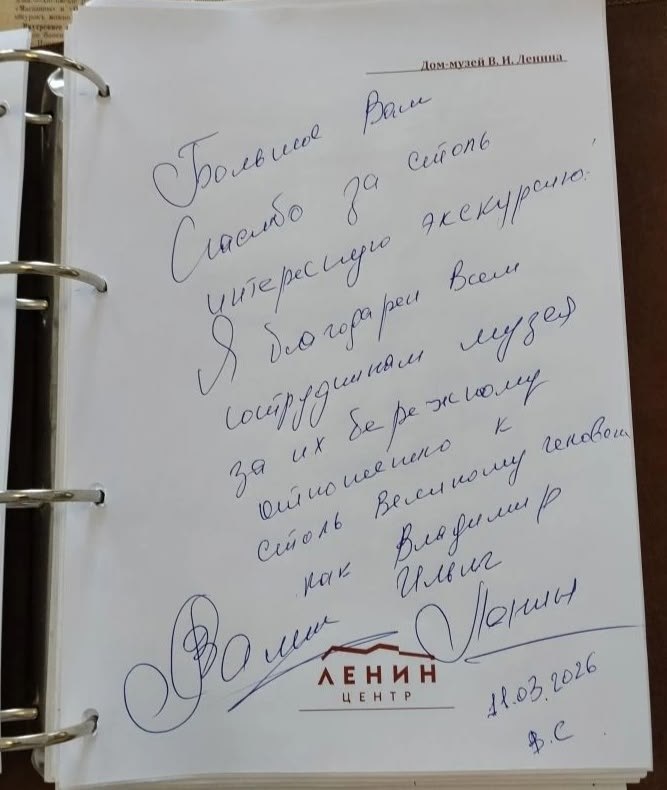 Дом-музей В. И. Ленина
Большое Вам
Спасибо за столь
интересную экскурсию!
Я благодарен Всем
сотрудникам музея
за их бережному
отношению к
столь Великому человеку
как Владимир
Ильич
Ленин
ЛЕНИН
ЦЕНТР
11.03.2026
В.С.